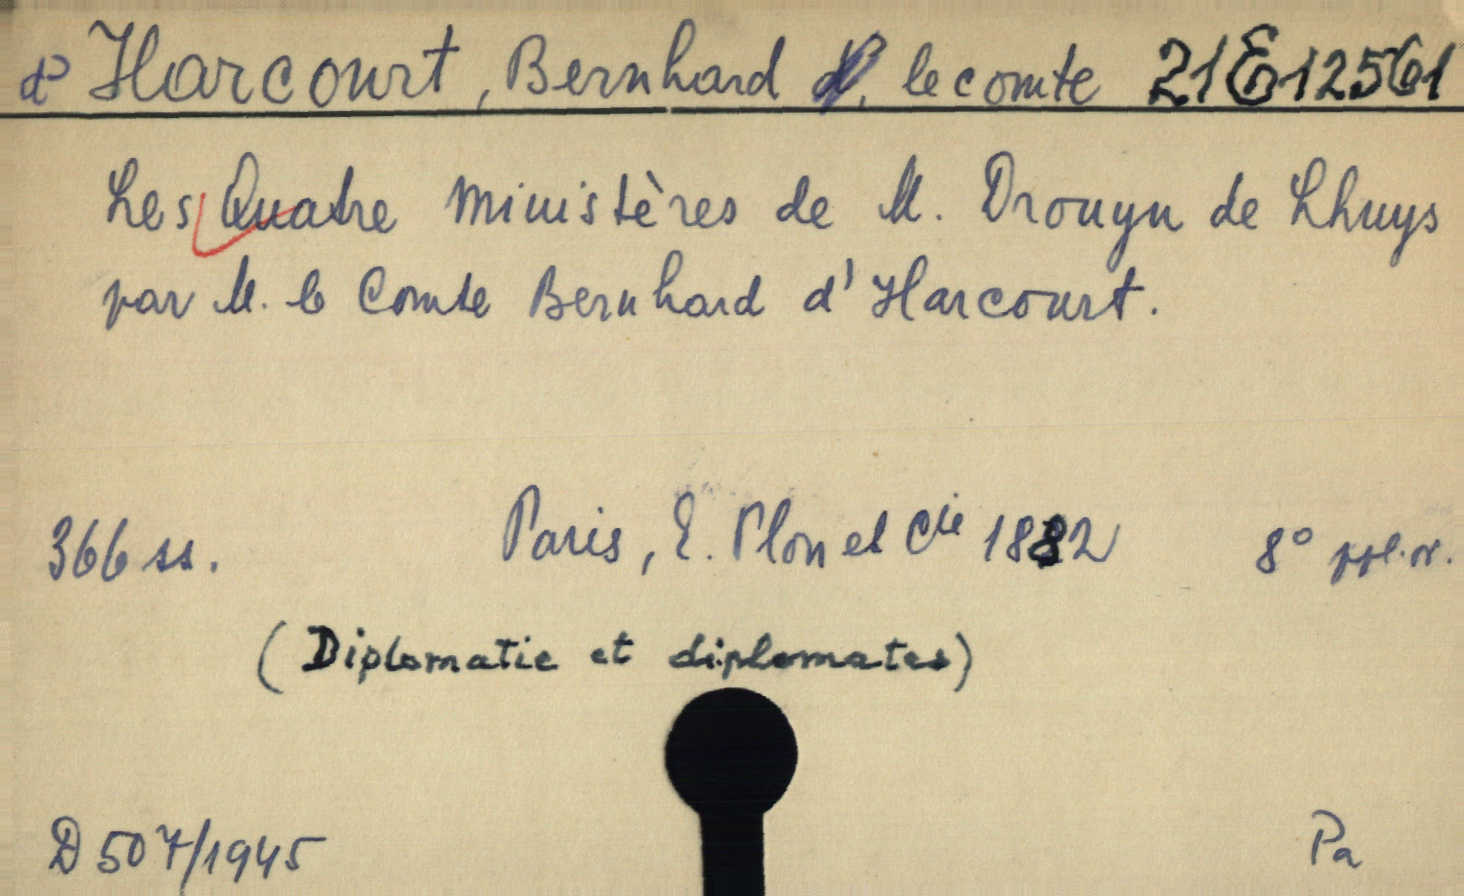 d' Harcourt, Bernhard , le comte 21E12561
Les Quatre ministères de M. Drouyn de Lhuys
par M. le Comte Bernhard d'Harcourt.
366 ss. Paris, E. Plon et Cie 1882 8° ppl.
(Diplomatie et diplomates)
D 507/1945 Pa